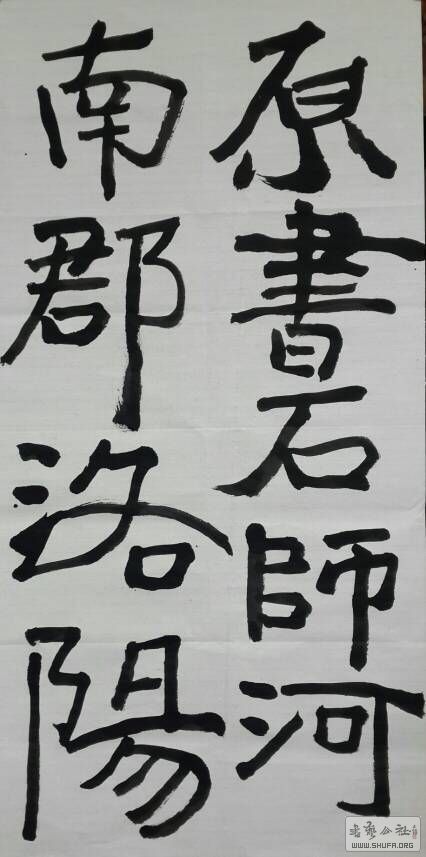 原書石師河
南郡洛陽
书艺公社
WWW.SHUFA.ORG